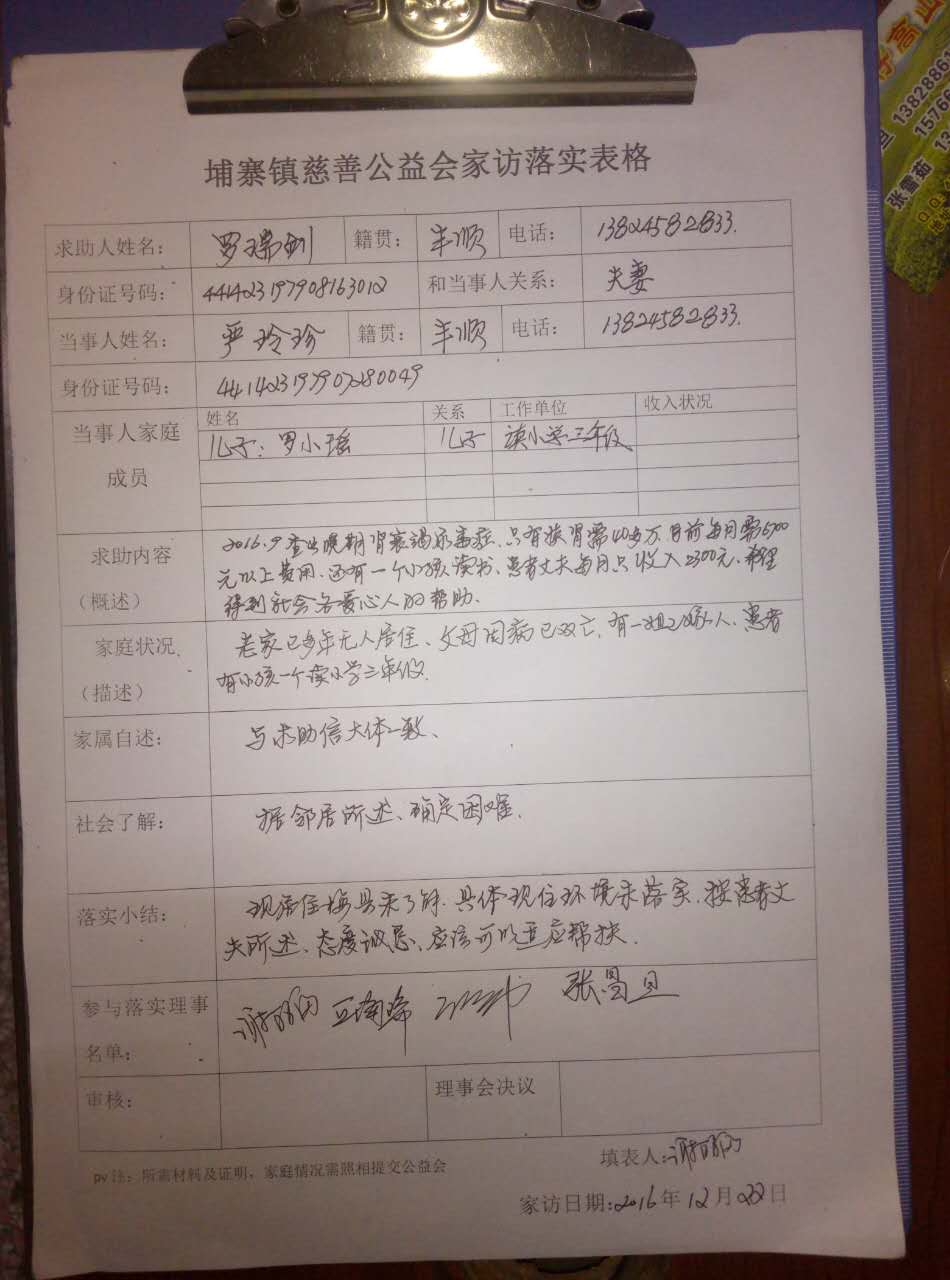 埔寨镇慈善公益会家访落实表格
求助人姓名: 罗瑞到 籍贯: 丰顺 电话: 13824582833.
身份证号码: 441423197908163012 和当事人关系: 夫妻
当事人姓名: 严玲珍 籍贯: 丰顺 电话: 13824582833.
身份证号码: 441423197907280049
当事人家庭成员 姓名 关系 工作单位 收入状况
儿子: 罗小瑶 儿子 读小学三年级
求助内容(概述) 2016.9查出晚期肾衰竭尿毒症、只有换肾需40多万、目前每月需6700
元以上费用、还有一个小孩读书、患者丈夫每月只收入2300元、希望
得到社会各爱心人的帮助、
家庭状况(描述) 老家已多年无人居住、父母因病已双亡、有一姐已嫁人、患者
有小孩一个读小学三年级.
家属自述: 与求助信大体一致、
社会了解: 据邻居所述、确定困难.
落实小结: 现居住梅县未了解.具体现住环境未落实.按患者丈
夫所述、态度诚恳、应该可以适应帮扶.
参与落实理事名单: 张昌旦
审核: 理事会决议
填表人:
pv注: 所需材料及证明,家庭情况需照相提交公益会
家访日期:2016年12月22日
张雪茹